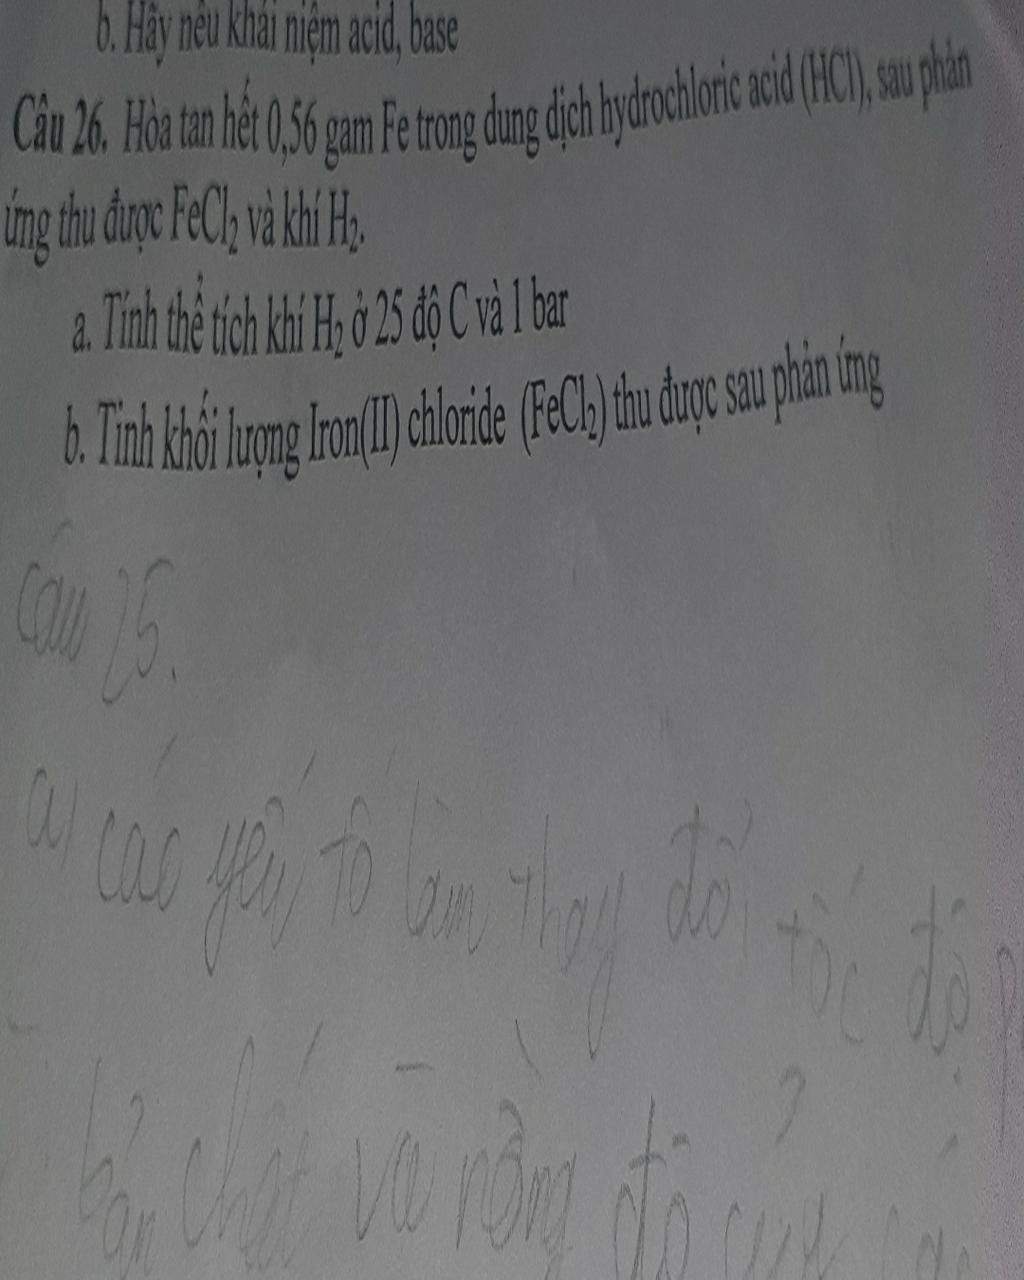 b. Hãy nêu khái niệm acid, base
Câu 26. Hòa tan hết 0,56 gam Fe trong dung dịch hydrochloric acid (HCl), sau phản
ứng thu được FeCl₂ và khí H₂.
a. Tính thể tích khí H₂ ở 25 độ C và 1 bar
b. Tinh khối lượng Iron(II) chloride (FeCl₂) thu được sau phản ứng
Câu 25.
a) các yếu tố làm thay đổi tốc độ
bản chất và nồng độ của